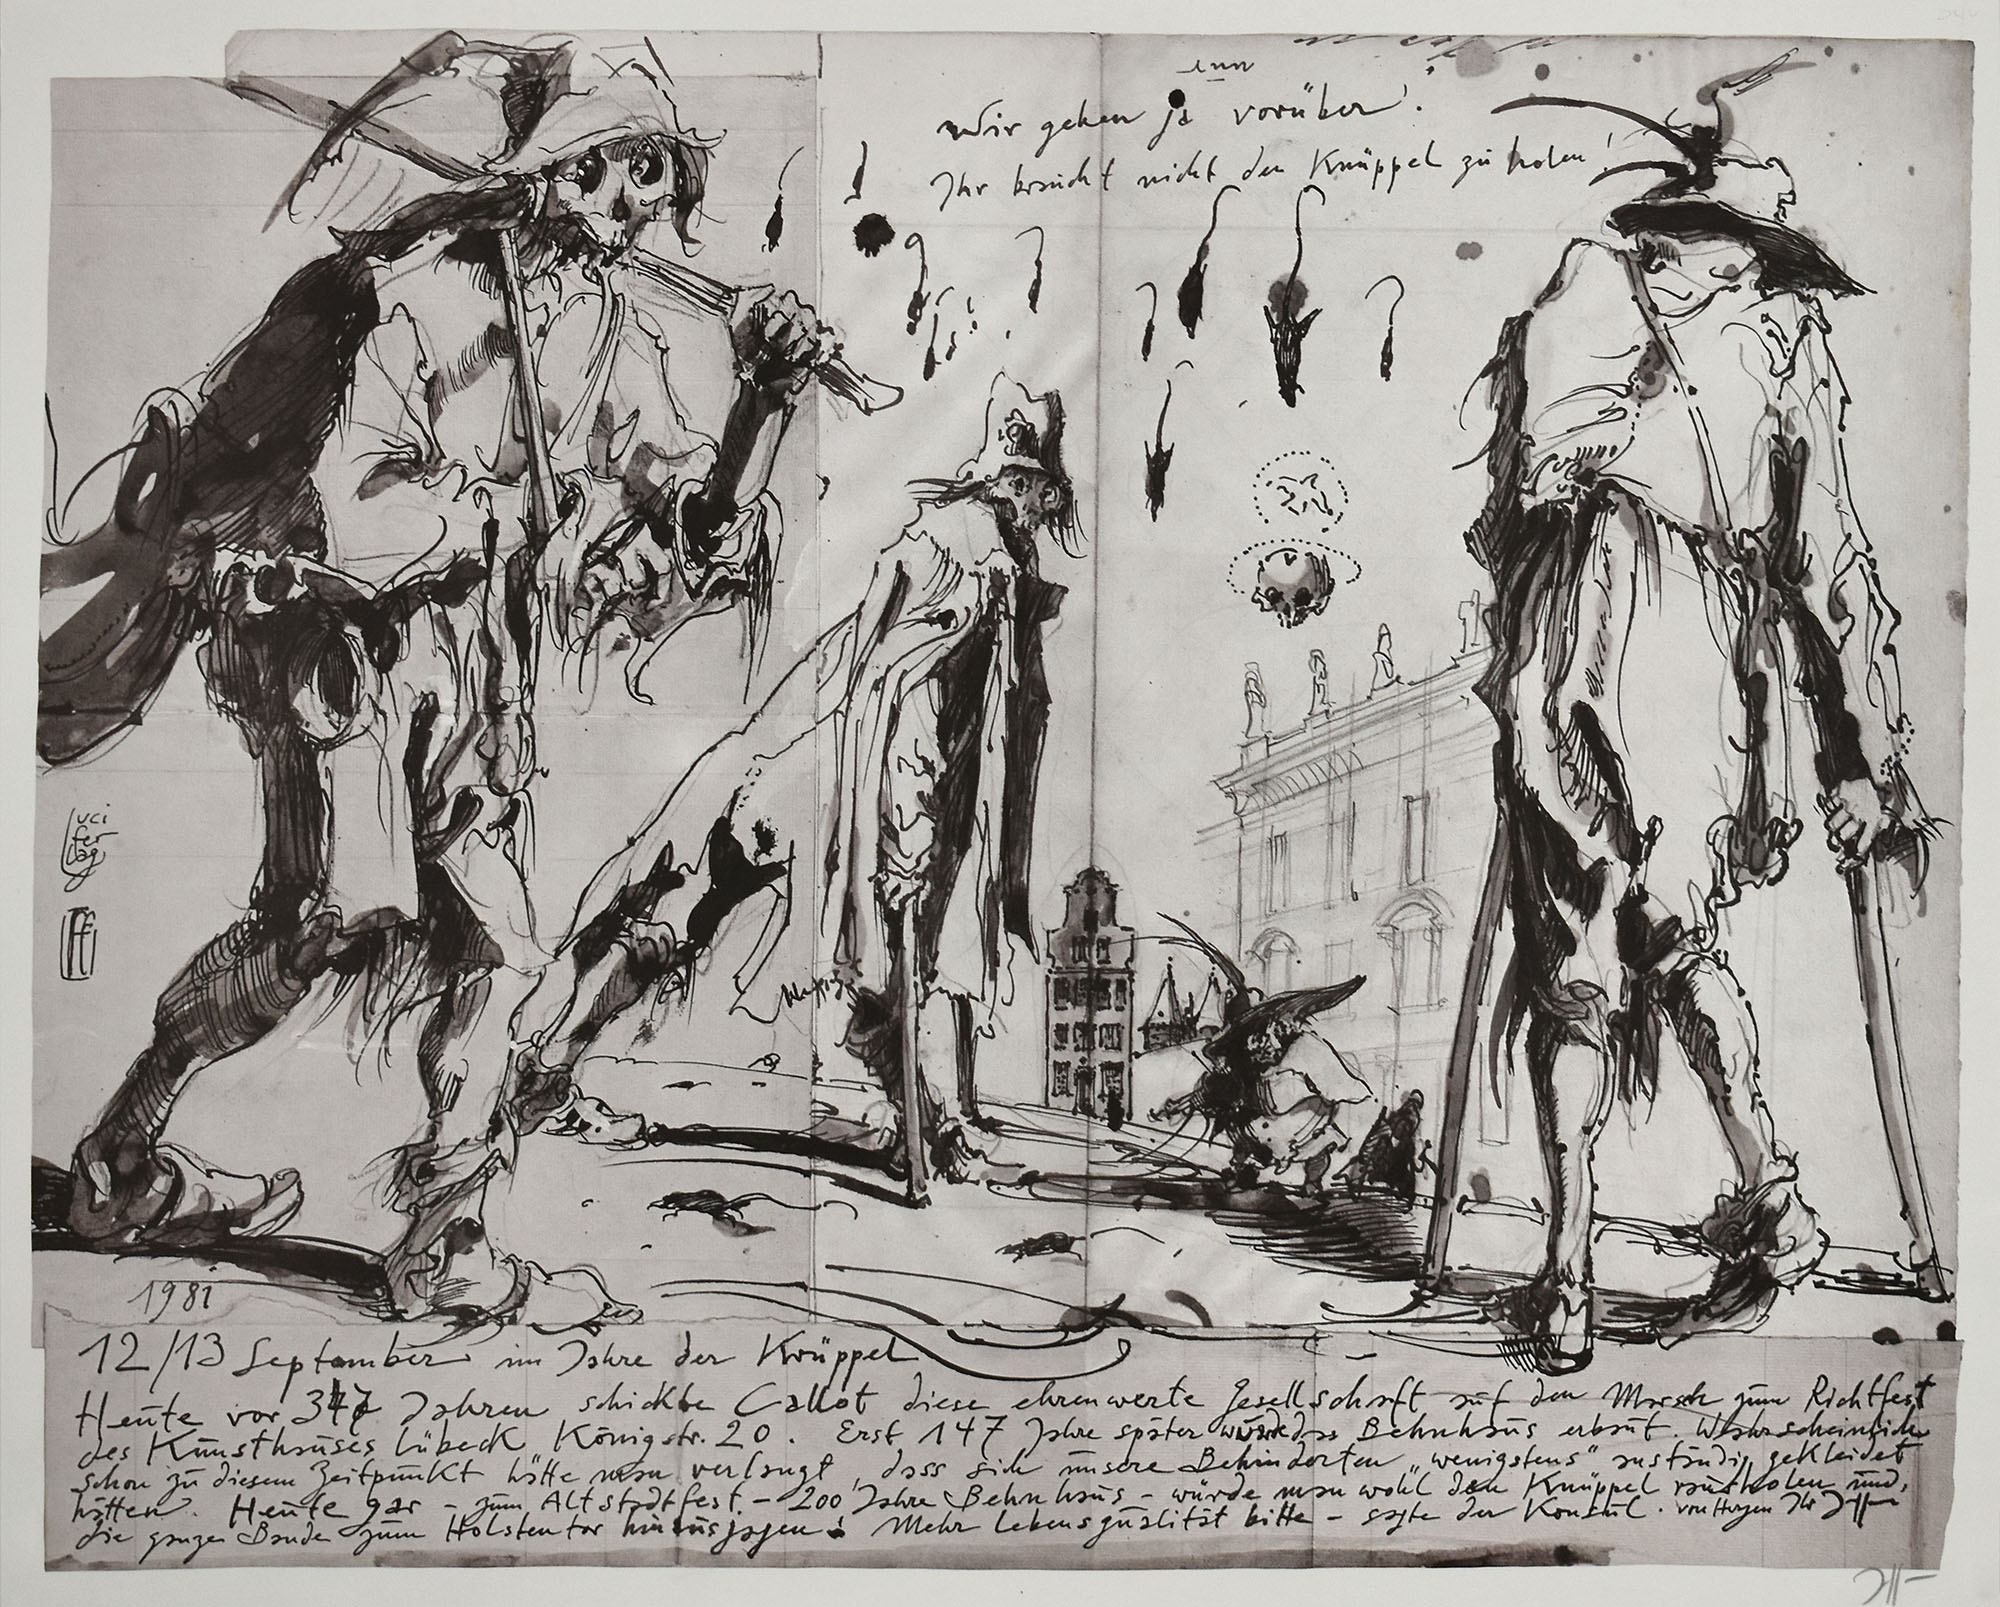 nun
Wir gehen ja vorüber!
Ihr braucht nicht den Knüppel zu holen!
Luci
fer
lag
1981
12/13 September im Jahre der Krüppel
Heute vor 347 Jahren schickte Callot diese ehrenwerte Gesellschaft auf den Marsch zum Richtfest
des Kunsthauses Lübeck, Königstr. 20. Erst 147 Jahre später wurde das Behnhaus erbaut. Wahrscheinlich
schon zu diesem Zeitpunkt hätte man verlangt, dass sich unsere Behinderten „wenigstens" anständig gekleidet
hätten. Heute gar – zum Altstadtfest – 200 Jahre Behnhaus – würde man wohl den Knüppel rausholen und
die ganze Bande zum Holstentor hinausjagen! Mehr Lebensqualität bitte – sagte der Konsul. von Herzen Ihr